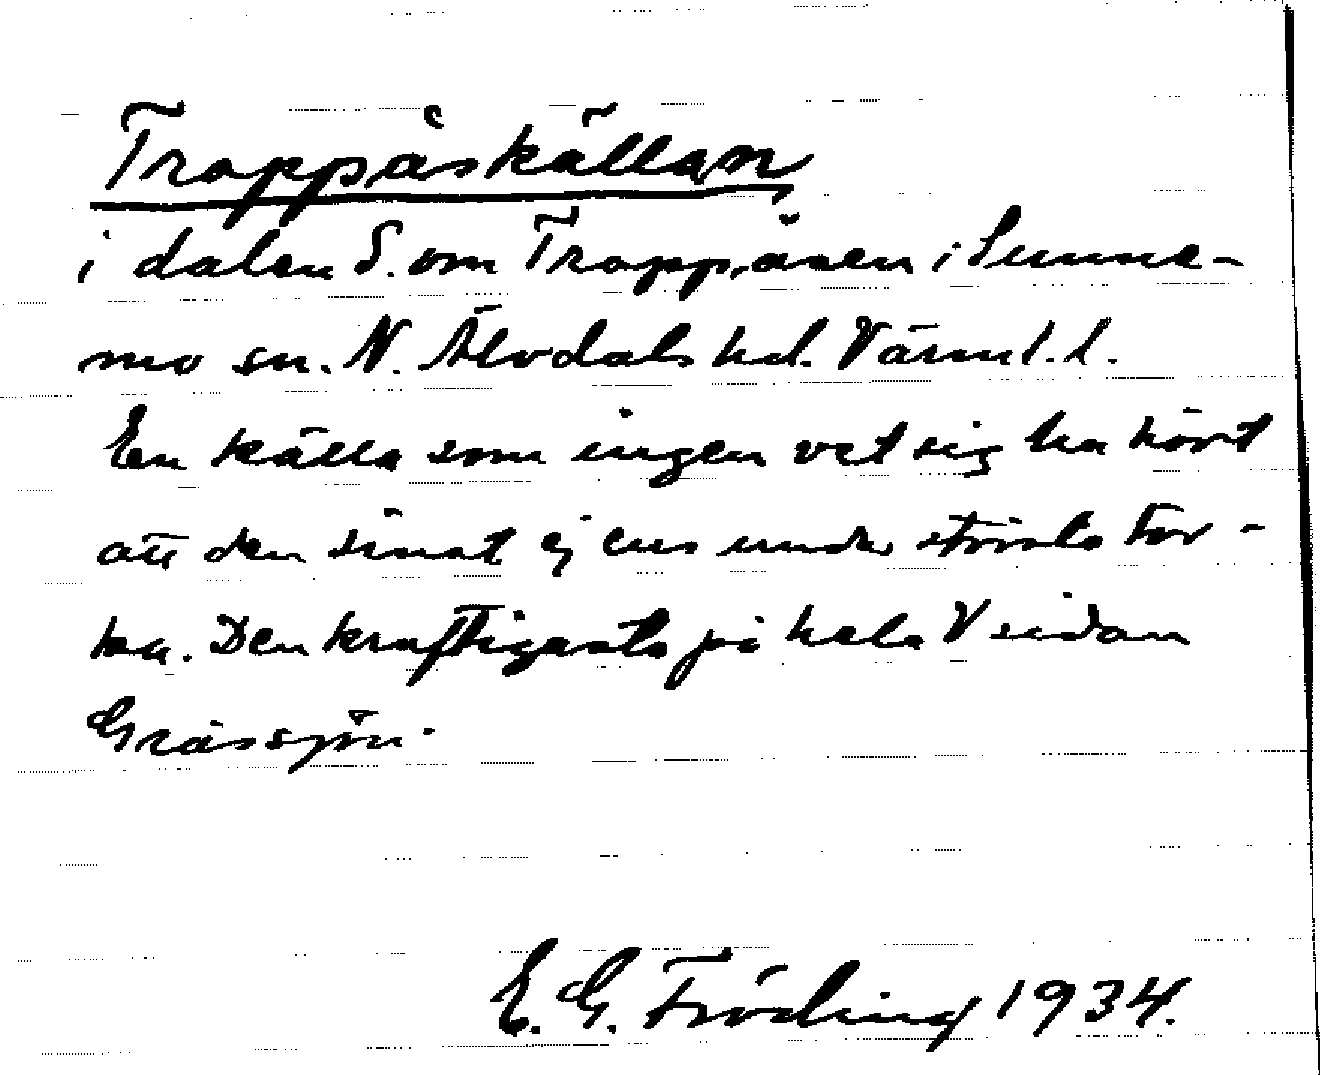 Troppåskällan
i dalen S. om Troppåsen i Sunne-
mo sn. N. Älvdals hd. Värml. l.
En källa som ingen vet sig ha hört
att den sinat ej ens under största tor-
ka. Den kraftigaste på hela V sidan
Grässjön.
E. G. Fröding 1934.